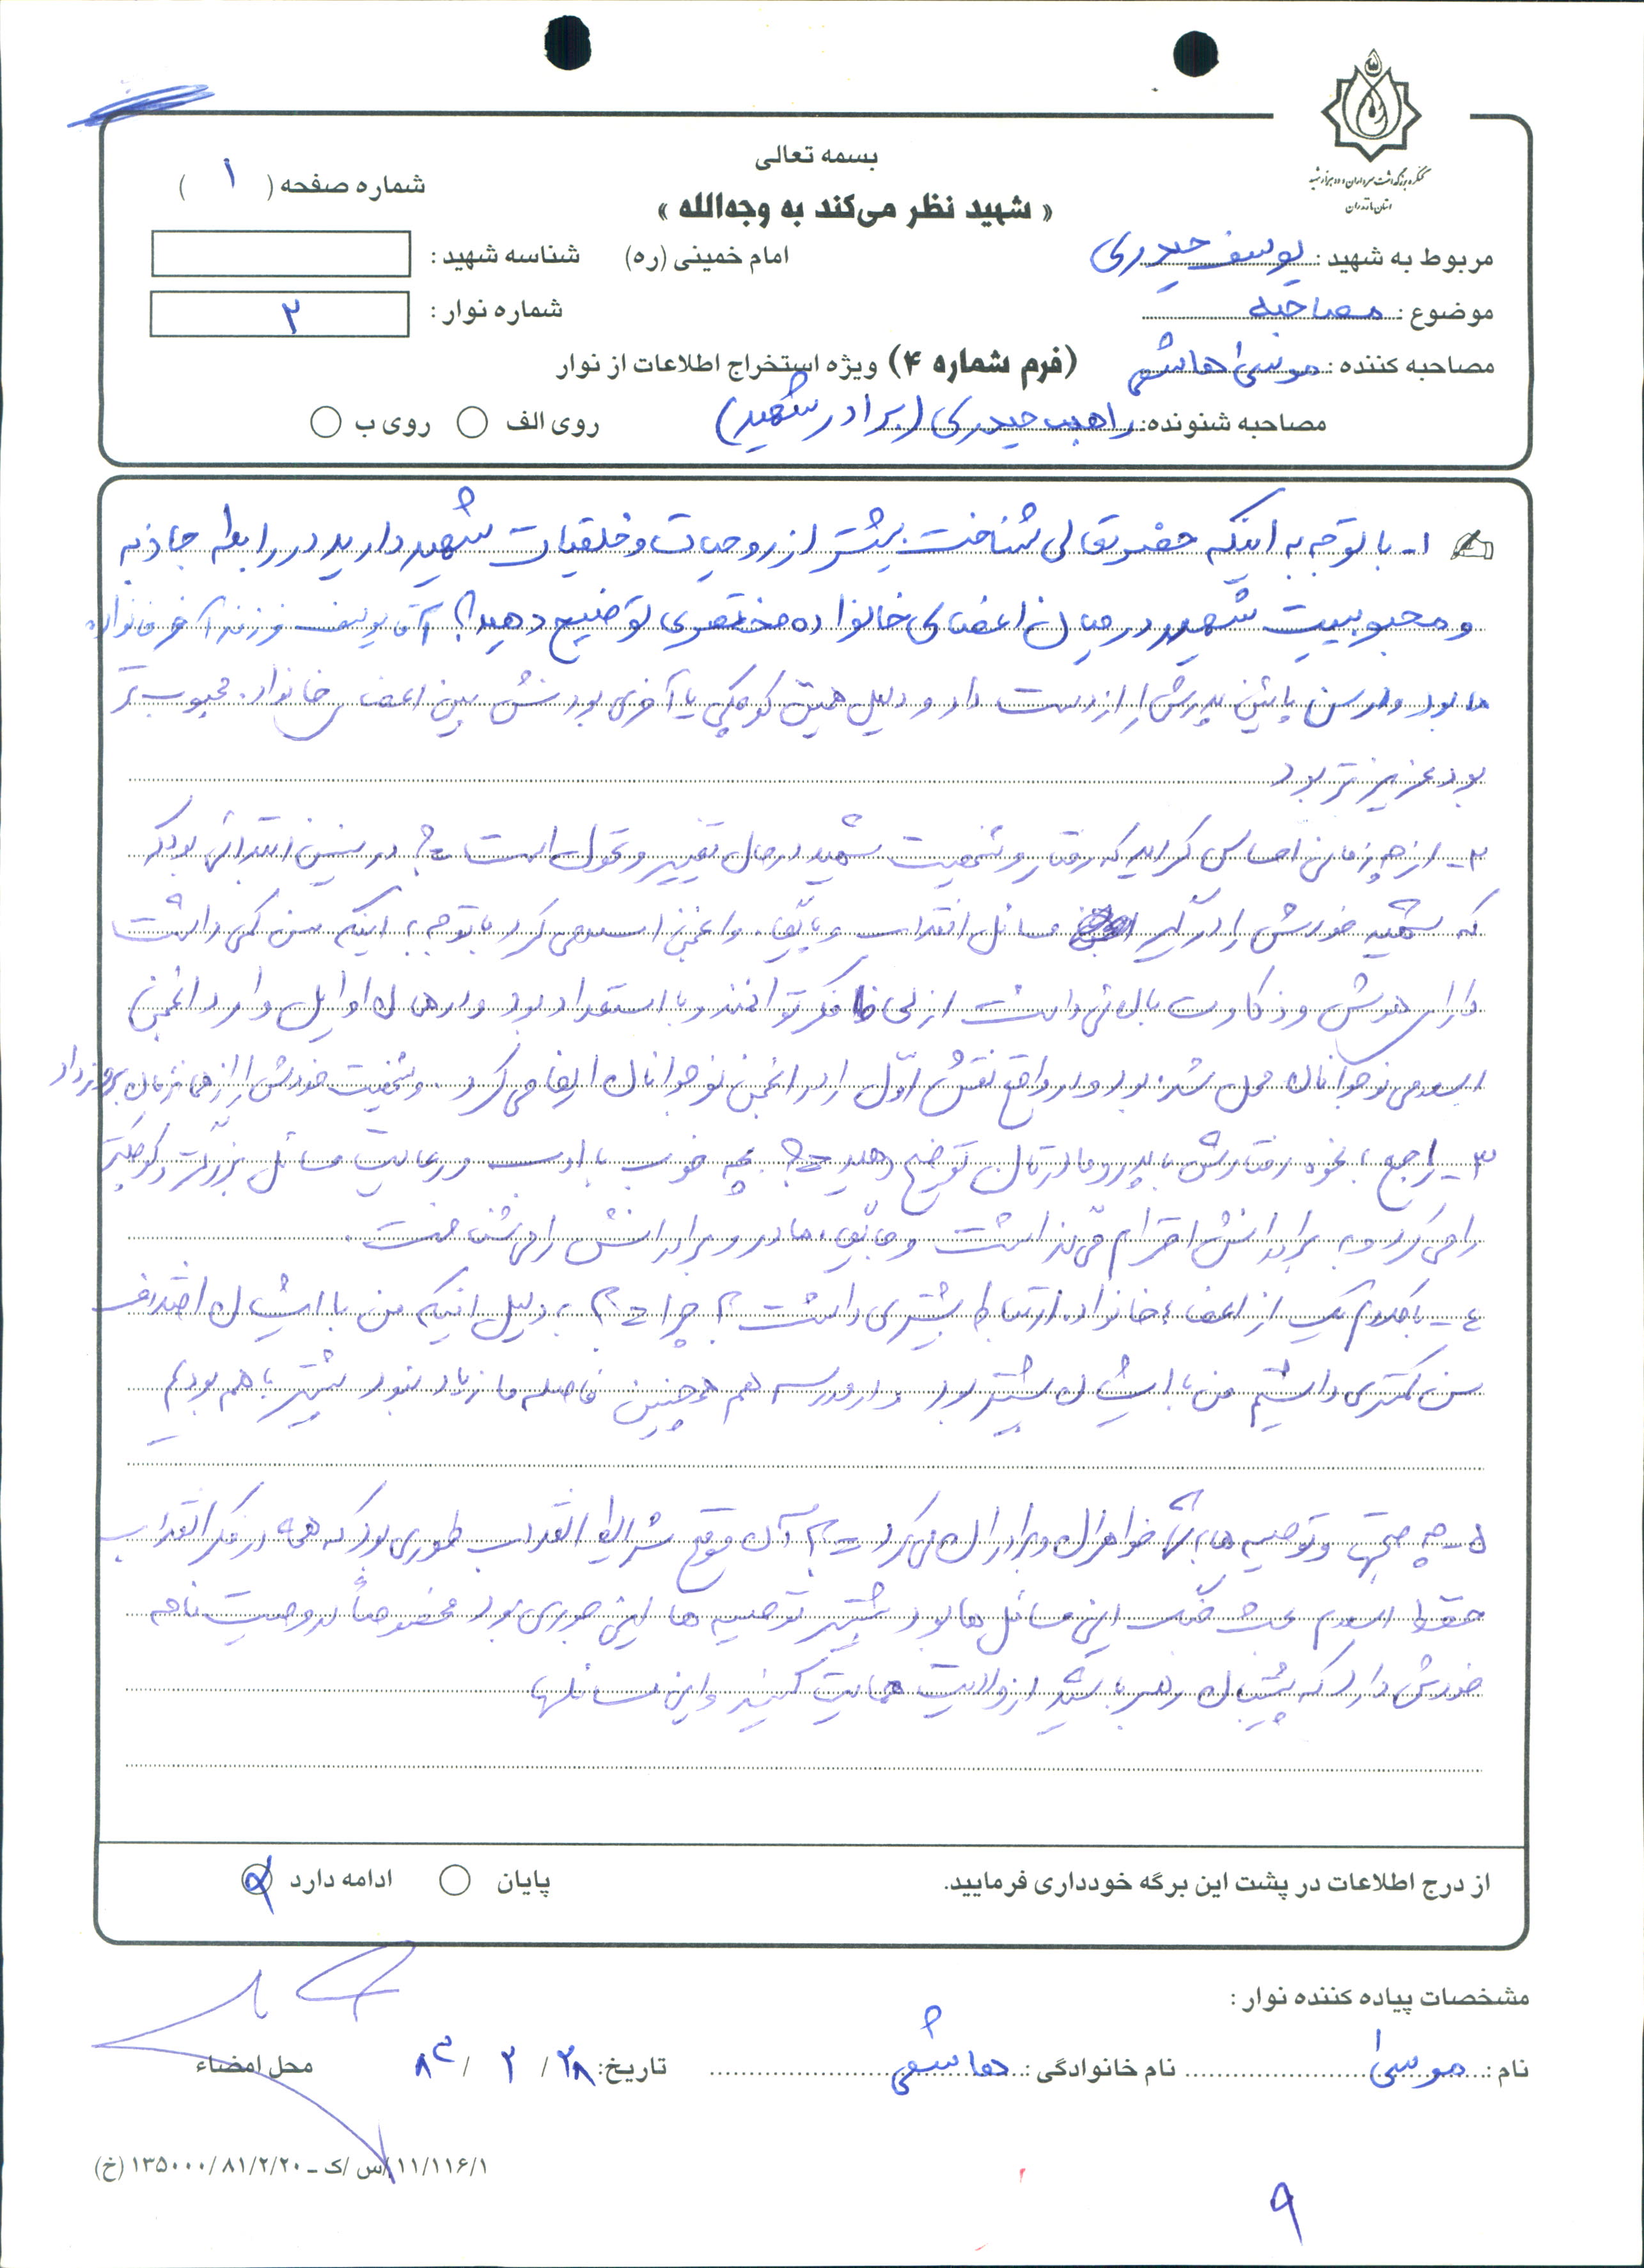 کنگره بزرگداشت سرداران و ده هزار شهید
استان مازندران
بسمه تعالی
شماره صفحه ( ۱ )
« شهید نظر می‌کند به وجه‌الله »
مربوط به شهید : یوسف حیدری
امام خمینی (ره)
شناسه شهید :
موضوع : مصاحبه
شماره نوار : ۲
مصاحبه کننده : موسی هاشمی
(فرم شماره ۴) ویژه استخراج اطلاعات از نوار
مصاحبه شنونده: راهب حیدری (برادر شهید)
روی الف
روی ب
۱- با توجه به اینکه حضرتعالی شناخت بیشتر از روحیات و خلقیات شهید دارید در رابطه جاذبه
و محبوبیت شهید در میان اعضای خانواده مختصری توضیح دهید؟ آقا یوسف فرزند آخر خانواده
ما بود و در سن پائین پدرش را از دست داد و دلیل همین کوچکی یا آخری بودنش بین اعضای خانواده محبوب تر
بود عزیز تر بود
۲- از چه زمانی احساس کردید که رفتار و شخصیت شهید در حال تغییر و تحول است؟ در سنین ابتدائی بود که
که شهید خودش را درگیر مسائل انقلاب و بقیه و انجمن اسلامی کرد با توجه به اینکه سن کمی داشت
دارای هوش و ذکاوت بالائی داشت از لحاظ فکر توانمند و با استعداد بود و در همان اوایل وارد انجمن
اسلامی نوجوانان محل شده بود و در واقع نقش اول را در انجمن نوجوانان ایفا می کرد. و شخصیت خودش را از همان زمان بروز داد
۳- راجع به نحوه رفتارش با پدر و مادرتان توضیح دهید؟ بچه خوب با ادب و رعایت مسائل بزرگتر و کوچکتر
را می کرد و به برادرانش احترام می گذاشت و مادر و برادرانش را می شناخت.
٤- با کدام یک از اعضاء خانواده ارتباط بیشتری داشت؟ چرا؟ به دلیل اینکه من با ایشان اختلاف
سن کمتری داشتیم من با ایشان بیشتر بود و در مدرسه هم همچنین فاصله ما زیاد نبود بیشتر با هم بودیم
۵- چه صحبتها و توصیه ها به خواهران و برادران می کرد؟ آن موقع شرایط انقلاب طوری بود که همه در فکر انقلاب
حفظ اسلام بحث جنگ این مسائل ها بود بیشتر توصیه ها این جوری بود مخصوصاً در وصیت نامه
خودش دارد که پشتیبان رهبر باشید از ولایت حمایت کنید و این مسائلها
از درج اطلاعات در پشت این برگه خودداری فرمایید.
پایان
ادامه دارد
مشخصات پیاده کننده نوار :
نام : موسی
نام خانوادگی : هاشمی
تاریخ: ۲۸ / ۲ / ۸۳
محل امضاء
۱۱/۱۱۶/۱ /س /ک ـ ۱۳۵۰۰۰/۸۱/۲/۲۰ (خ)
۹